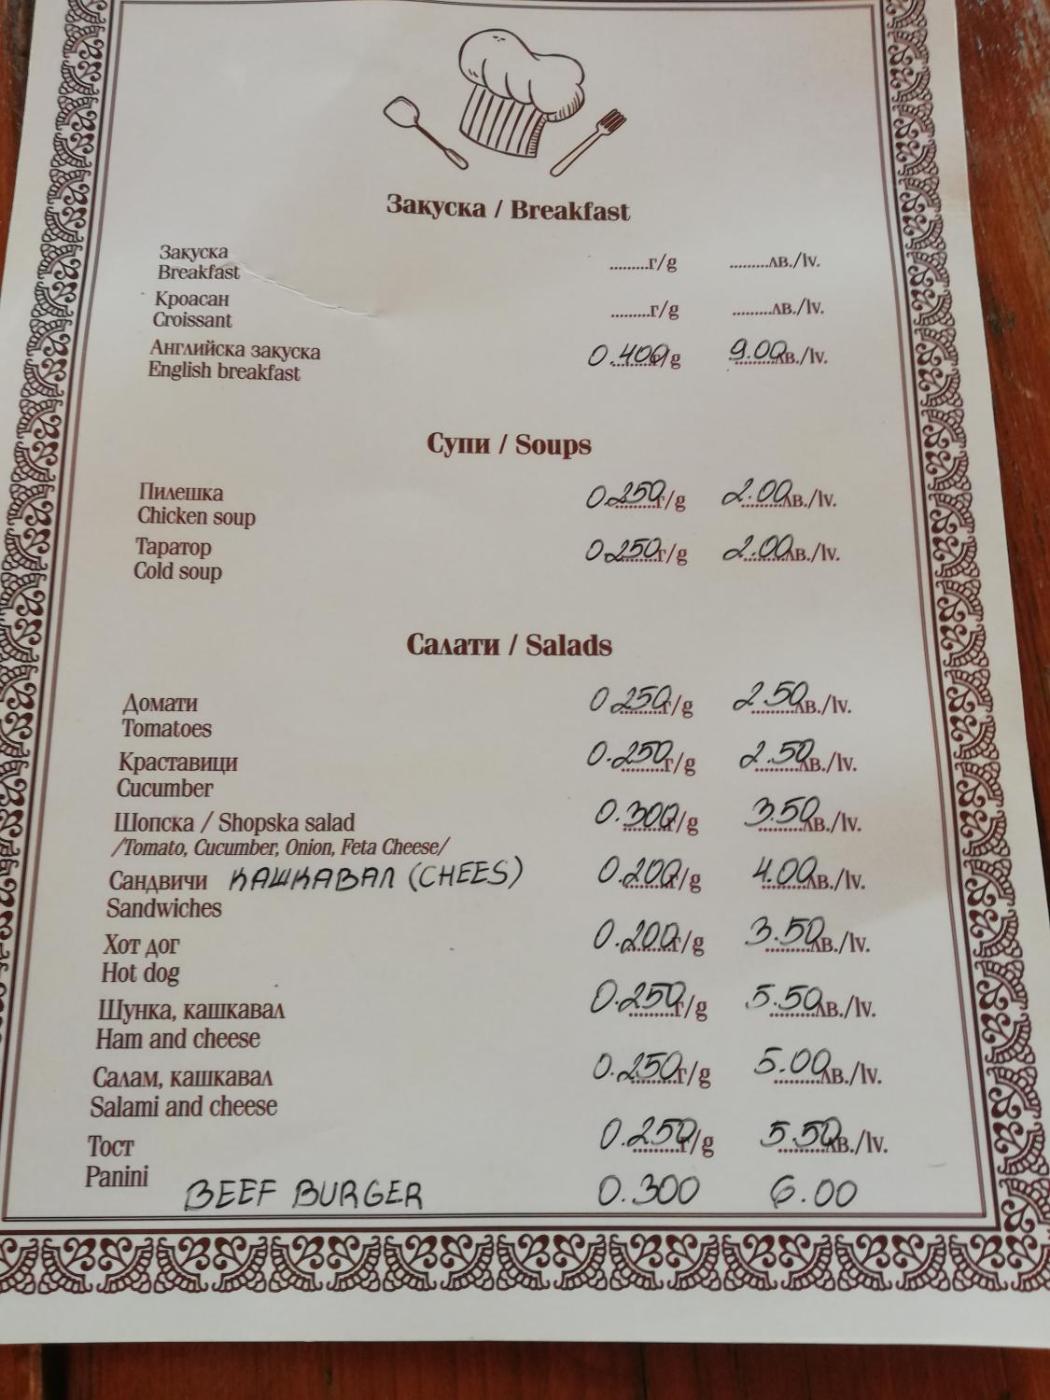 Закуска / Breakfast
Закуска .........г/g .........лв./lv.
Breakfast
Кроасан .........г/g .........лв./lv.
Croissant
Английска закуска 0.400г/g 9.00лв./lv.
English breakfast
Супи / Soups
Пилешка 0.250г/g 2.00лв./lv.
Chicken soup
Таратор 0.250г/g 2.00лв./lv.
Cold soup
Салати / Salads
Домати 0.250г/g 2.50лв./lv.
Tomatoes
Краставици 0.250г/g 2.50лв./lv.
Cucumber
Шопска / Shopska salad 0.300г/g 3.50лв./lv.
/Tomato, Cucumber, Onion, Feta Cheese/
Сандвичи КАШКАВАЛ (CHEES) 0.200г/g 4.00лв./lv.
Sandwiches
Хот дог 0.200г/g 3.50лв./lv.
Hot dog
Шунка, кашкавал 0.250г/g 5.50лв./lv.
Ham and cheese
Салам, кашкавал 0.250г/g 5.00лв./lv.
Salami and cheese
Тост 0.250г/g 5.50лв./lv.
Panini
BEEF BURGER 0.300 6.00